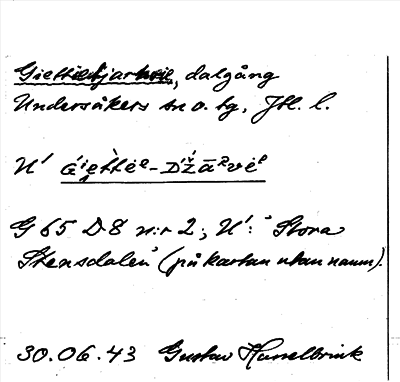 dalgång
Undersåkers sn o. tg, Jtl. l.
U'
G 65 D 8 n:r 2; U': "Stora
Stensdalen" (på kartan utan namn).
30.06.43 Gustav Hasselbrink